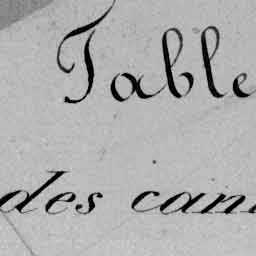 Table
des can